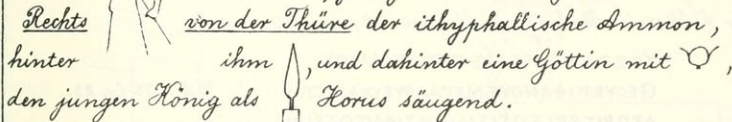 Rechts von der Thüre der ithyphallische Ammon,
hinter ihm , und dahinter eine Göttin mit ,
den jungen König als Horus säugend.